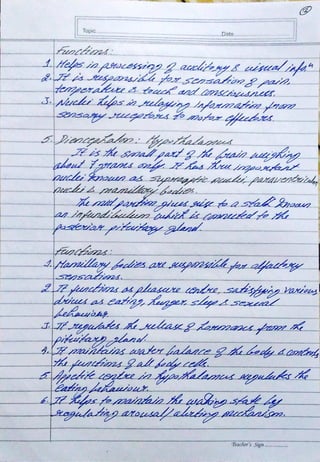 4
Topic
Date
Functions:
1. Helps in processing of auditory & visual info."
2. It is responsible for sensation of pain,
temperature & touch and consciousness.
3. Nuclei helps in relaying information from
sensory receptors to motor effectors.
5. Diencephalon: Hypothalamus
It is the small part of the brain weighing
about 7 grams only. It has three important
nuclei known as supraoptic nuclei, paraventricular
nuclei & mamillary bodies.
The mid portion gives rise to a stalk known
an Infundibulum which is connected to the
posterior pituitary gland.
Functions:
1. Mamillary bodies are responsible for olfactory
sensations.
2. It functions as pleasure centre, satisfying various
drives as eating, hunger, sleep & sexual
behaviour.
3. It regulates the release of hormones from the
pituitary gland.
4. It maintains water balance of the body & controls
the functions of all body cells.
5. Appetite centre in hypothalamus regulates the
eating behaviour.
6. It helps to maintain the waking state by
regulating arousal/alerting mechanism.
Teacher's Sign